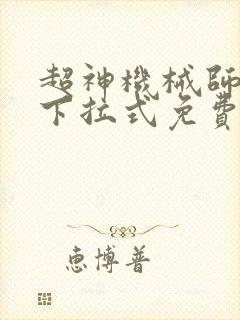 超神機械師
下拉式免費
恵博普